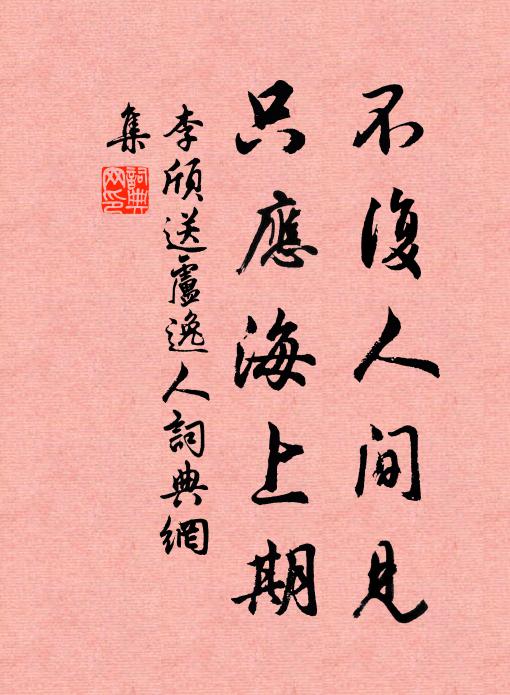 不復人間見
只應海上期
李頎送盧逸人詞典網
集
詞典网印